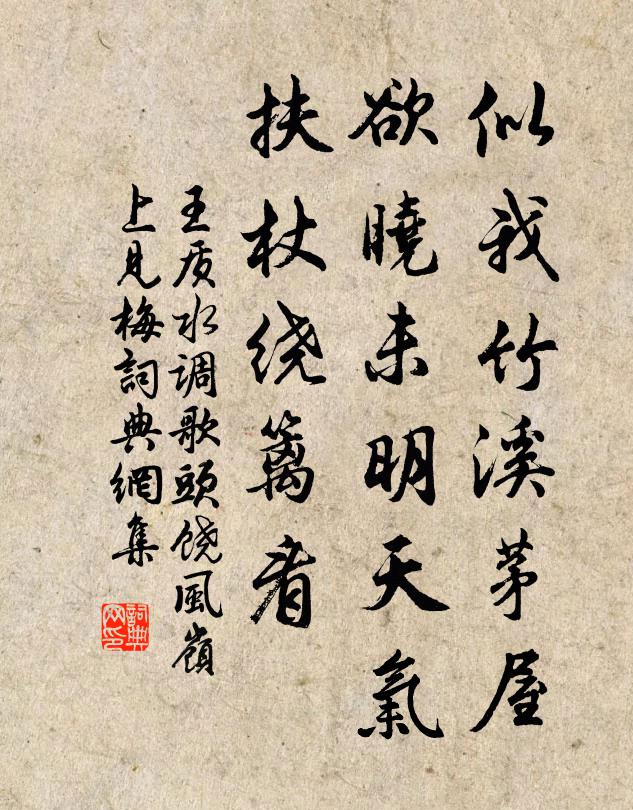 似我竹溪茅屋
欲曉未明天氣
扶杖绕篱看
王质水调歌頭饶風嶺
上見梅詞典網集
詞典网印